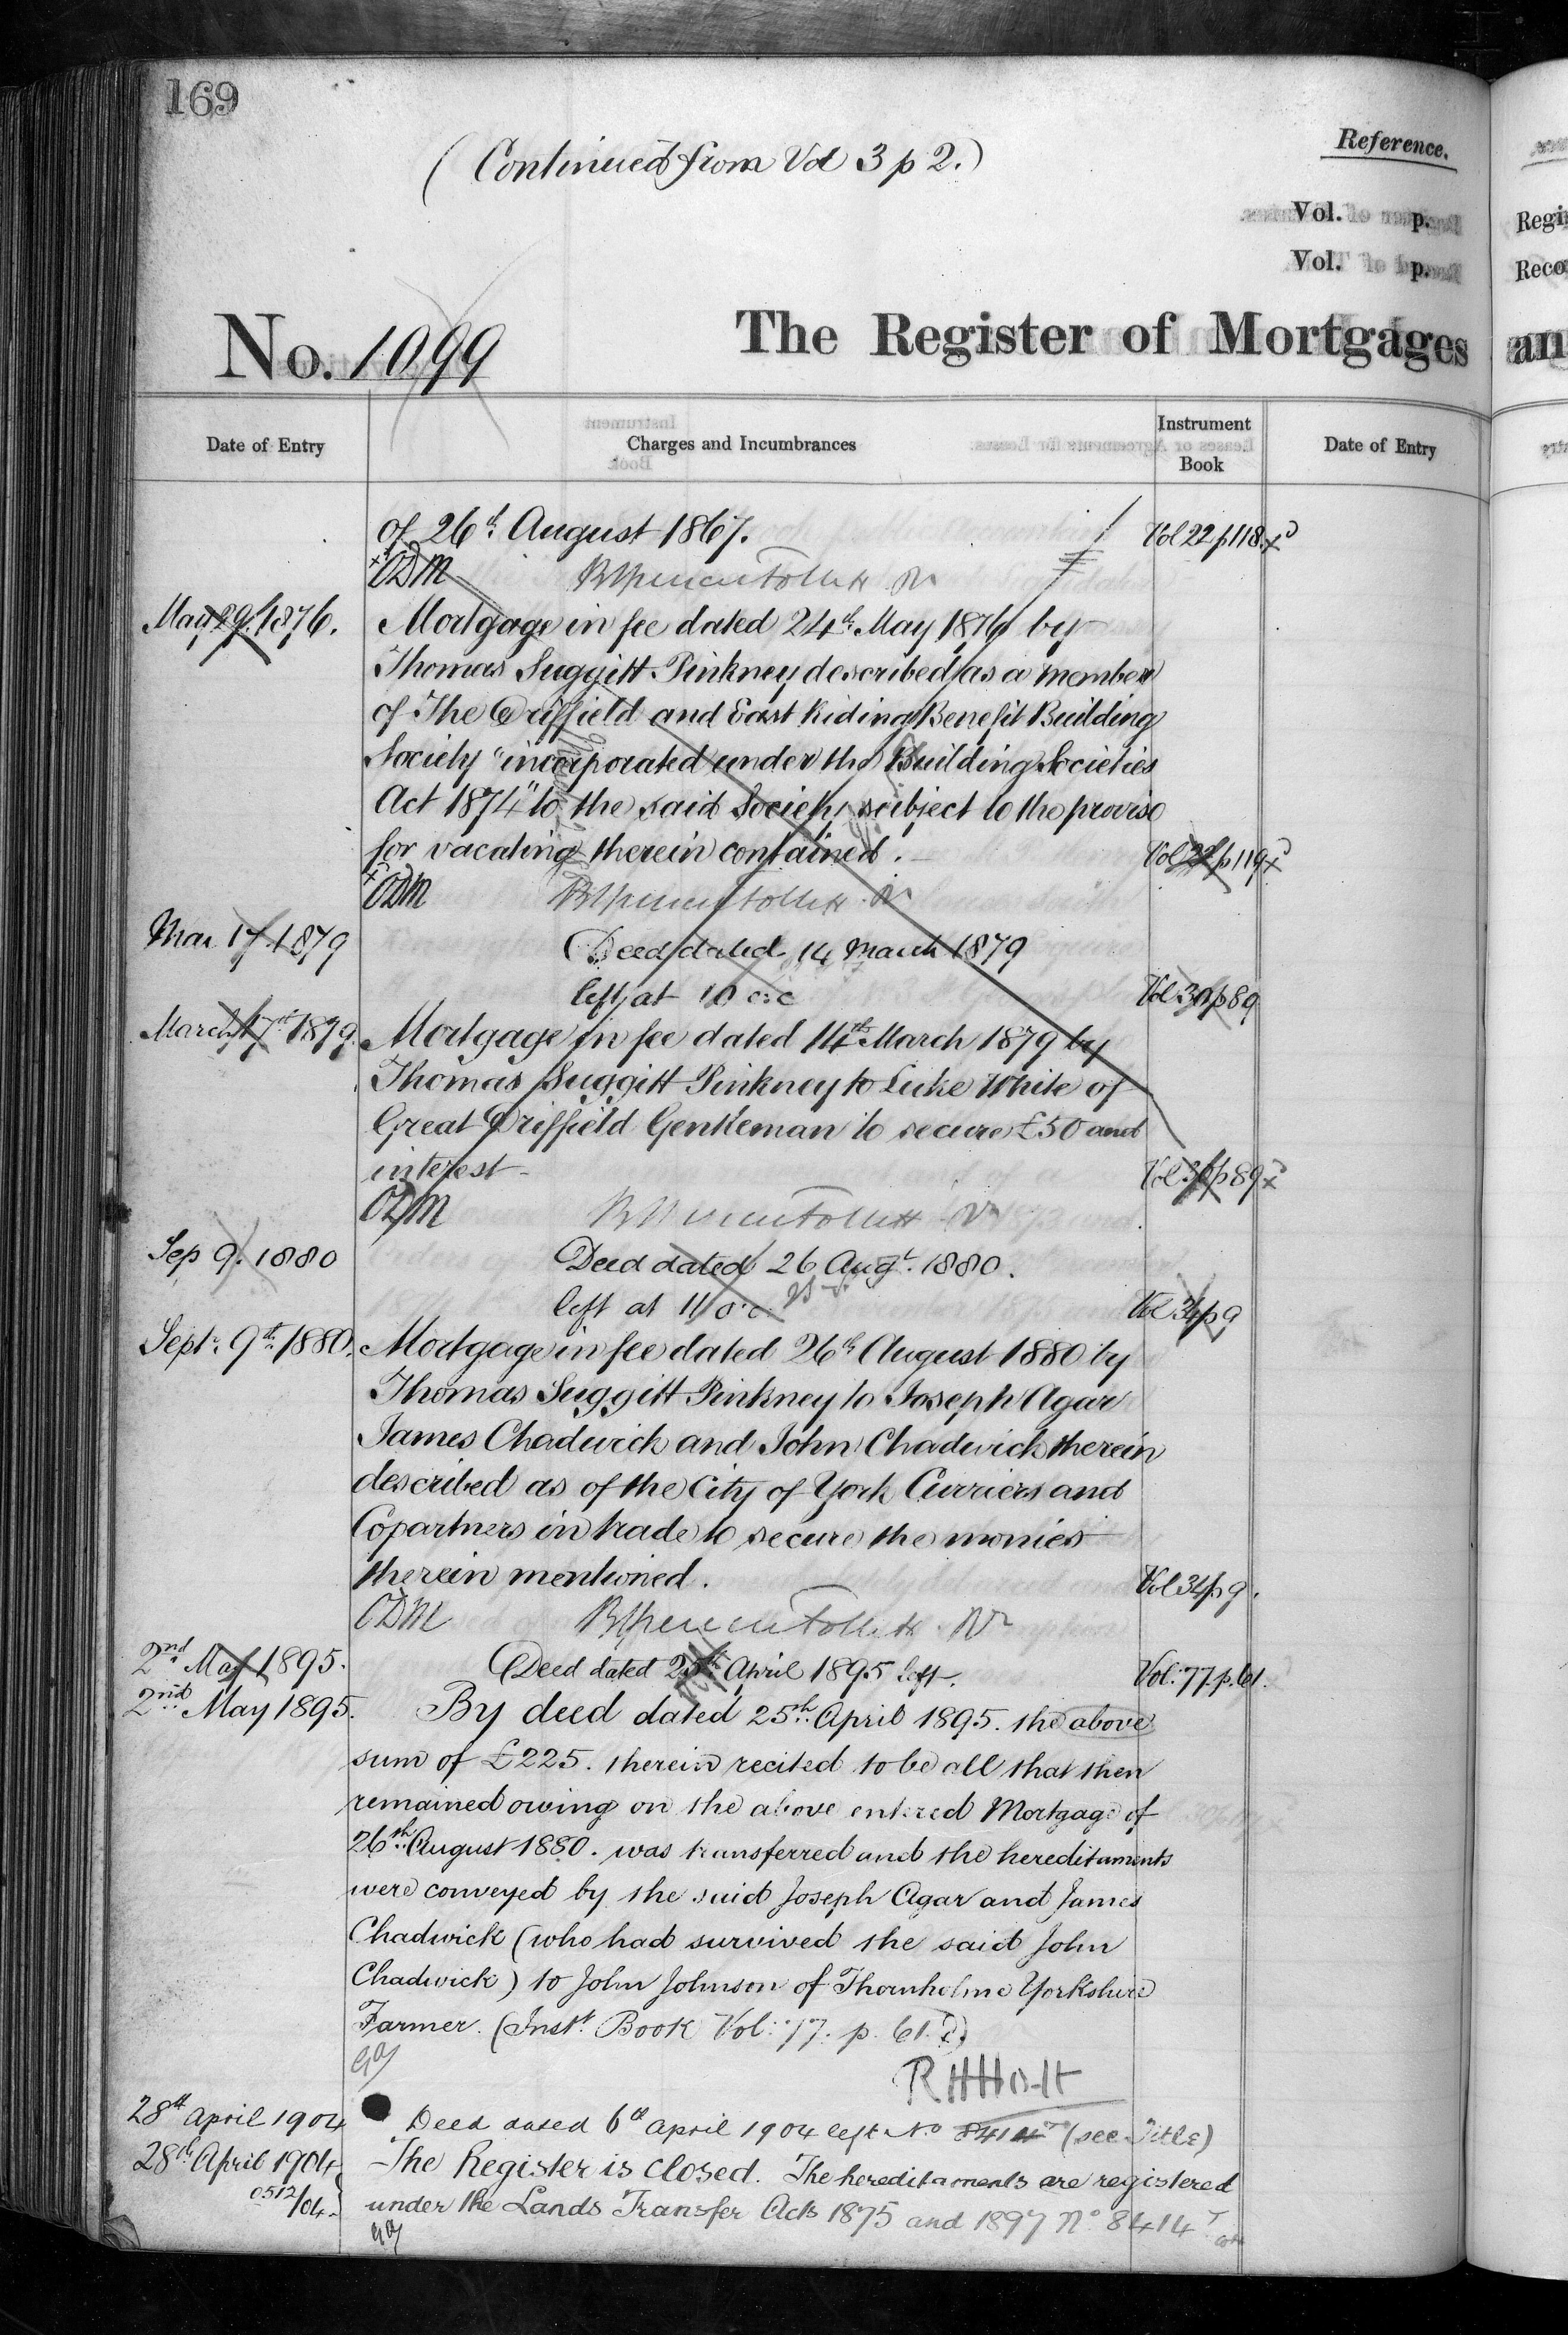 169
(Continued from Vol 3 p 2.)
Reference.
Vol. p.
Vol. p.
Regi
Reco
No. 1099
The Register of Mortgages
an
Date of Entry
Charges and Incumbrances
Instrument Book
Date of Entry
of 26th August 1867.
Vol 22 p 118
ODM
May 29. 1876.
Mortgage in fee dated 24th May 1876 by
Thomas Suggitt Pinkney described as a member
of The Driffield and East Riding Benefit Building
Society "incorporated under the Building Societies
Act 1874" to the said Society subject to the proviso
for vacating therein contained.
Vol 22 p 119
ODM
Mar 17. 1879
Deed dated 14 March 1879
left at 10 o.c
Vol 30 p 89
March 17th 1879.
Mortgage in fee dated 14th March 1879 by
Thomas Suggitt Pinkney to Luke White of
Great Driffield Gentleman to secure £50 and
interest
Vol 30 p 89
ODM
Sep 9. 1880
Deed dated 26 Augt. 1880.
left at 11 o.c.
Vol 34 p 9
Septr. 9th 1880.
Mortgage in fee dated 26th August 1880 by
Thomas Suggitt Pinkney to Joseph Agar
James Chadwick and John Chadwick therein
described as of the City of York Curriers and
Copartners in trade to secure the monies
therein mentioned.
Vol 34 p 9.
ODM
2nd May 1895.
Deed dated 25th April 1895 left.
Vol: 77. p. 61.
2nd May 1895.
By deed dated 25th April 1895. the above
sum of £225. therein recited to be all that then
remained owing on the above entered Mortgage of
26th August 1880. was transferred and the hereditaments
were conveyed by the said Joseph Agar and James
Chadwick (who had survived the said John
Chadwick) to John Johnson of Thornholme Yorkshire
Farmer. (Inst. Book Vol: 77. p. 61.)
RHHolt
28th April 1904
Deed dated 6th April 1904 left No 8414 (see Title)
28th April 1904
The Register is closed. The hereditaments are registered
0512/04.
under the Lands Transfer Acts 1875 and 1897 No 8414